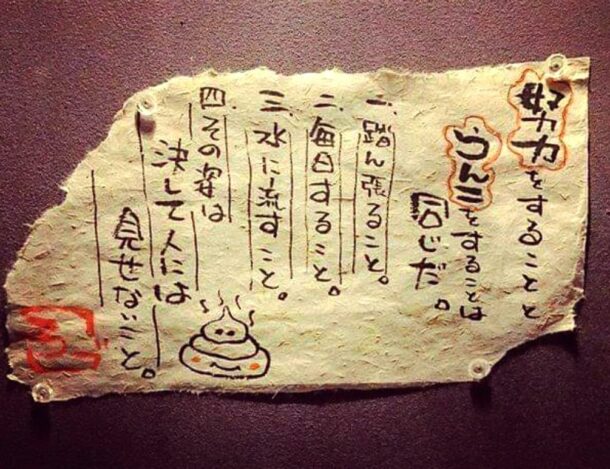 努力をすることと
うんこをすることは
同じだ。
一、踏ん張ること。
二、毎日すること。
三、水に流すこと。
四、その姿は
決して人には
見せないこと。